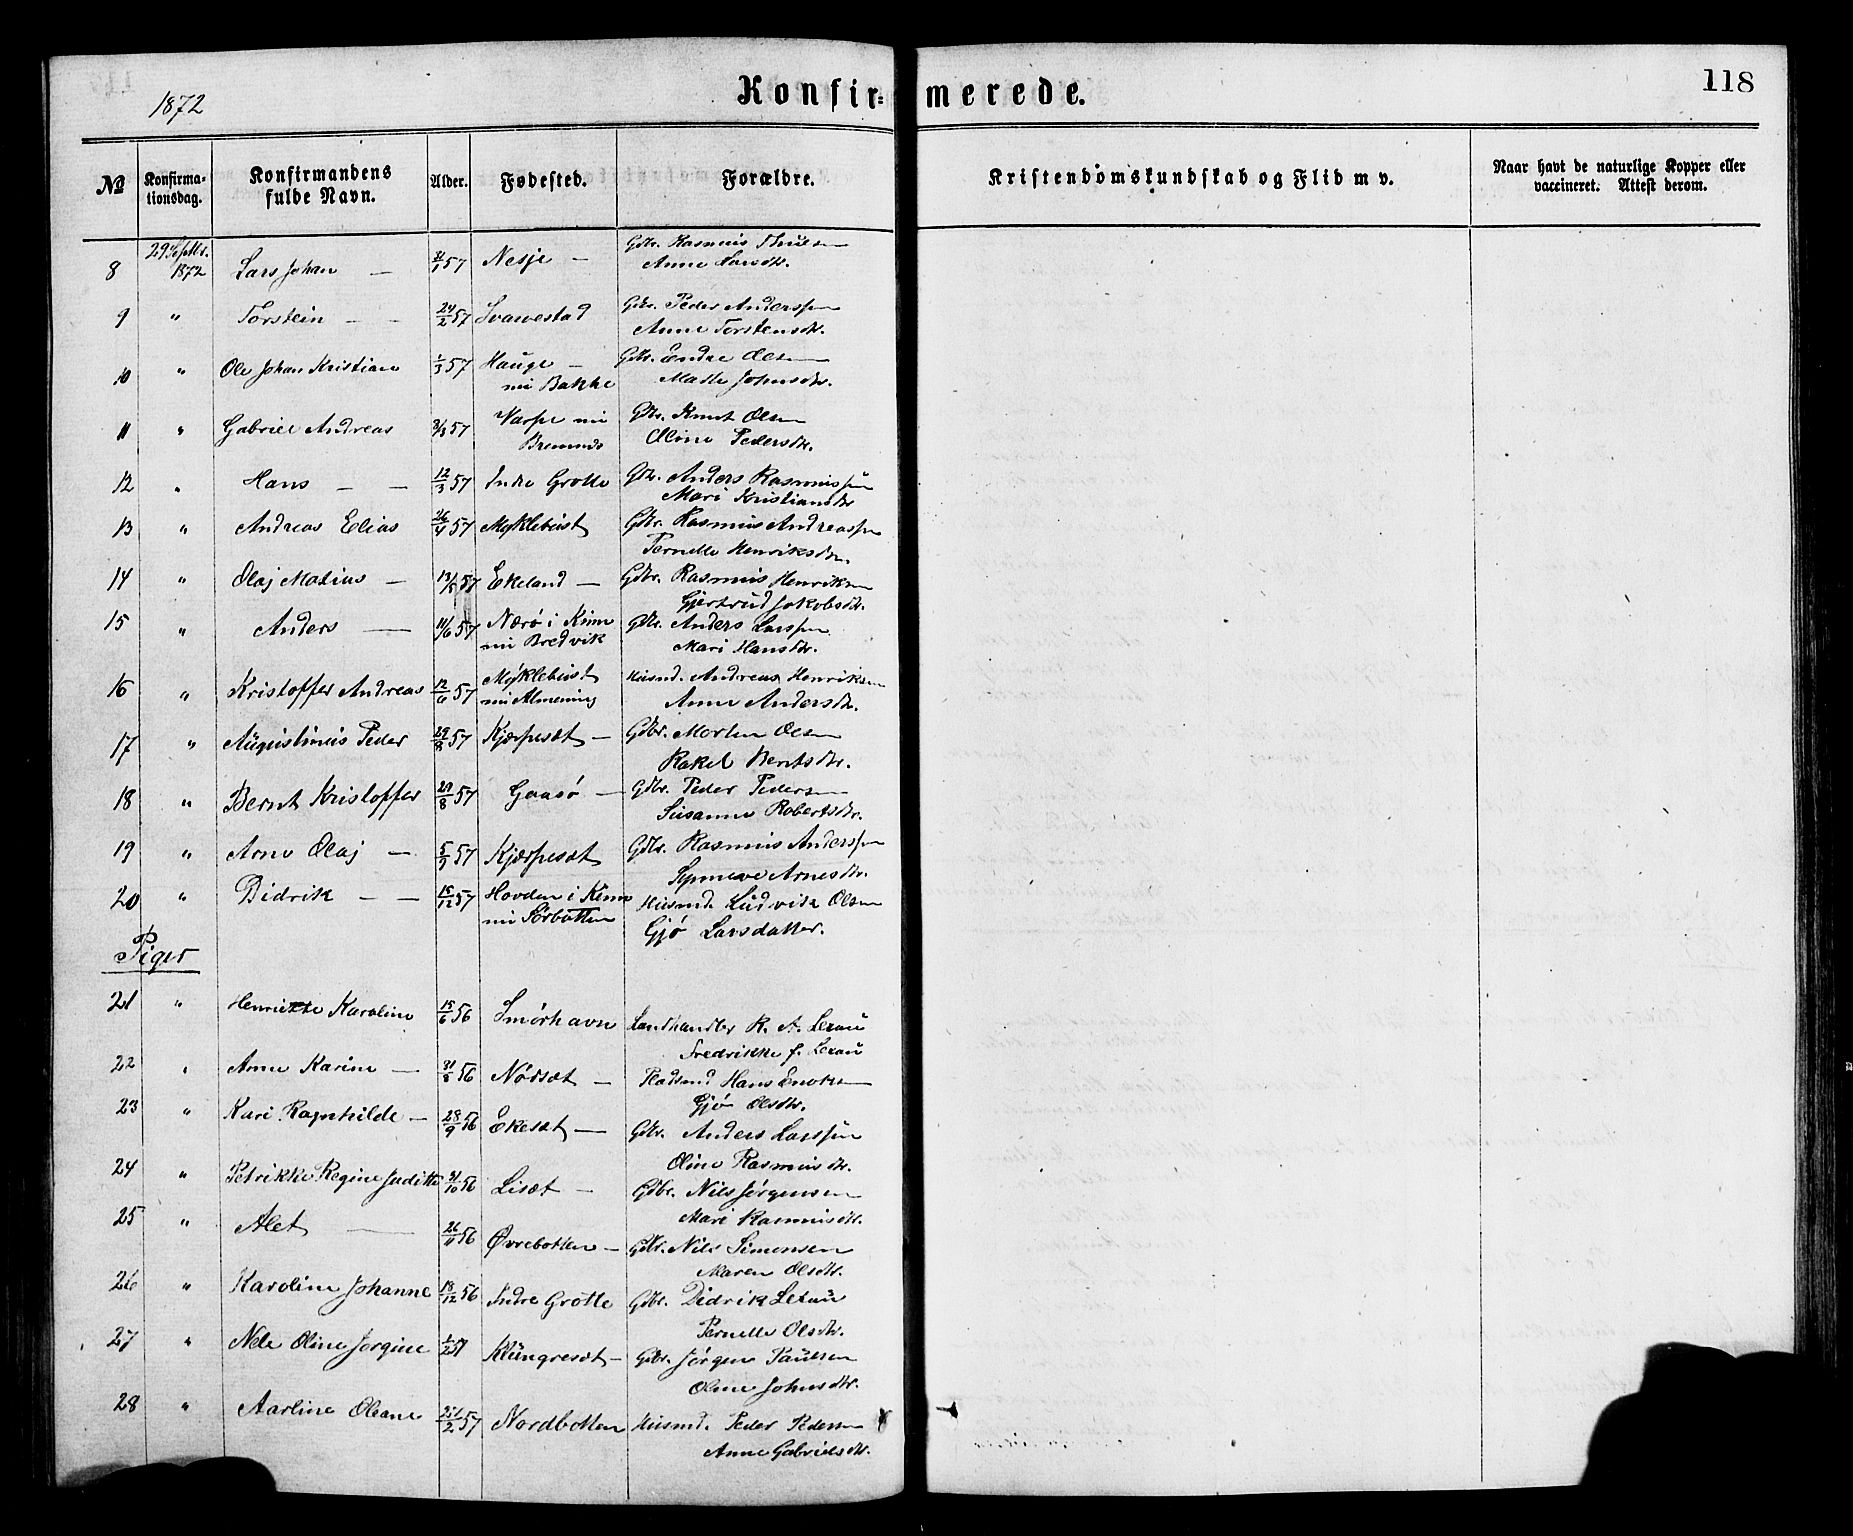 1872
Konfir= merede.
118
№ Konfirma-tionsdag. Konfirmandens fulde Navn. Alder. Fødested. Forældre. Kristendomskundskab og Flid m v. Naar havt de naturlige Kopper eller vaccineret. Attest derom.
8 29 Septbr. 1872 Lars Johan — 57 Nesje — Gdbr. Rasmus
Anne Larsdtr.
9 " Torstein — — 24/2 57 Svarvestad Gdbr. Peder Anderssen
Anne Torstensdtr.
10 " Ole Johan Kristian 1/3 57 Hauge — Gdbr. Endre Olsen
nu Bakke Johnsdtr.
11 " Gabriel Andreas 57 Varpe nu Gdbr. Knut Olsen
Bremnes Oline Pedersdtr.
12 " Hans — — 12/3 57 Indre Grotle Gdbr. Anders Rasmussen
Mari Kristiansdtr
13 " Andreas Elias 26/4 57 Myklebust Gdbr. Rasmus Andreassen
Pernelle Henriksdtr.
14 " Olaj Matias — 13/5 57 Ekeland — Gdbr. Rasmus Henriksen
Gjertrud Jakobsdtr.
15 " Anders — 11/6 57 Nærø i Kinn Gdbr. Anders Larssen
nu Bredvik Mari Hansdtr.
16 " Kristoffer Andreas 12/6 57 Myklebust Husmd. Andreas Henriksen
nu Almening Anne Andersdtr.
17 " Augustinus Peder 29/8 57 Kjærpesæt — Gdbr. Morten Olsen
Rakel Berntsdtr.
18 " Bernt Kristoffer 29/8 57 Gaasø — Gdbr. Peder Pedersen
Susanne Robertsdtr.
19 " Arne Olaj — 5/9 57 Kjærpesæt Gdbr. Rasmus Anderssen
Synneve Arnesdtr.
20 " Didrik — — 15/12 57 Hovden i Kinn Husmd. Ludvik Olsen
nu Sørbotten Gjø Larsdatter.
Piger
21 " Henriette Karoline 15/6 56 Smørhavn Landhandler R. A. Lexau
Fredrikke f. Lexau
22 " Anne Karine — 31/8 56 Nødsæt — Pladsmd Hans Enoksen
Gjø Olsdtr.
23 " Kari Ragnhilde — 28/9 56 Ekesæt — Gdbr. Anders Larssen
Oline Rasmusdtr.
24 " Petrikke Regine Juditte 31/10 56 Lisæt — Gdbr. Nils Jørgensen
Mari Rasmusdtr.
25 " Alet — 26/11 56 Øvrebotten — Gdbr. Nils Simonsen
Maren Olsdtr.
26 " Karoline Johanne 18/12 56 Indre Grotle Gdbr. Didrik Lexau
Pernelle Olsdtr.
27 " Nele Oline Jørgine 1/2 57 Klungresæt — Gdbr. Jørgen Paulsen
Oline Johnsdtr.
28 " Aarline Oleane 57 Nordbotten Husmd. Peder Pedersen
Anne Gabrielsdtr.